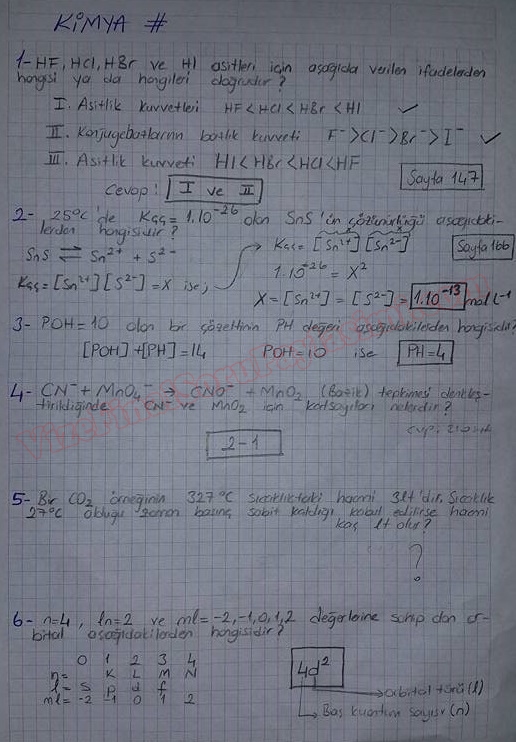 KİMYA #
1- HF, HCl, HBr ve HI asitleri için aşağıda verilen ifadelerden
hangisi ya da hangileri doğrudur?
I. Asitlik kuvvetleri HF < HCl < HBr < HI ✓
II. Konjuge bazlarının bazlık kuvveti F⁻ > Cl⁻ > Br⁻ > I⁻ ✓
III. Asitlik kuvveti HI < HBr < HCl < HF
Sayfa 147
Cevap: I ve II
2- 25°C'de Kçç = 1.10⁻²⁶ olan SnS'ün çözünürlüğü aşağıdaki-
lerden hangisidir?
Kçç = [Sn²⁺] [S²⁻]
Sayfa 166
SnS ⇌ Sn²⁺ + S²⁻
1.10⁻²⁶ = X²
Kçç = [Sn²⁺] [S²⁻] = X ise;
X = [Sn²⁺] = [S²⁻] = 1.10⁻¹³ mol L⁻¹
3- POH = 10 olan bir çözeltinin PH değeri aşağıdakilerden hangisidir?
[POH] + [PH] = 14 POH = 10 ise PH = 4
4- CN⁻ + MnO₄⁻ → CNO⁻ + MnO₂ (Bazik) tepkimesi denkleş-
tirildiğinde CN⁻ ve MnO₂ için katsayıları nelerdir?
2-1
5- Bir CO₂ örneğinin 327°C sıcaklıktaki hacmi 3lt'dir. Sıcaklık
27°C olduğu zaman basınç sabit kaldığı kabul edilirse hacmi
kaç lt olur?
?
6- n=4, ln=2 ve ml= -2,-1,0,1,2 değerlerine sahip olan or-
bital aşağıdakilerden hangisidir?
0 1 2 3 4
n = K L M N
l = s p d f
ml = -2 -1 0 1 2
4d²
orbital türü (l)
Baş kuantum sayısı (n)